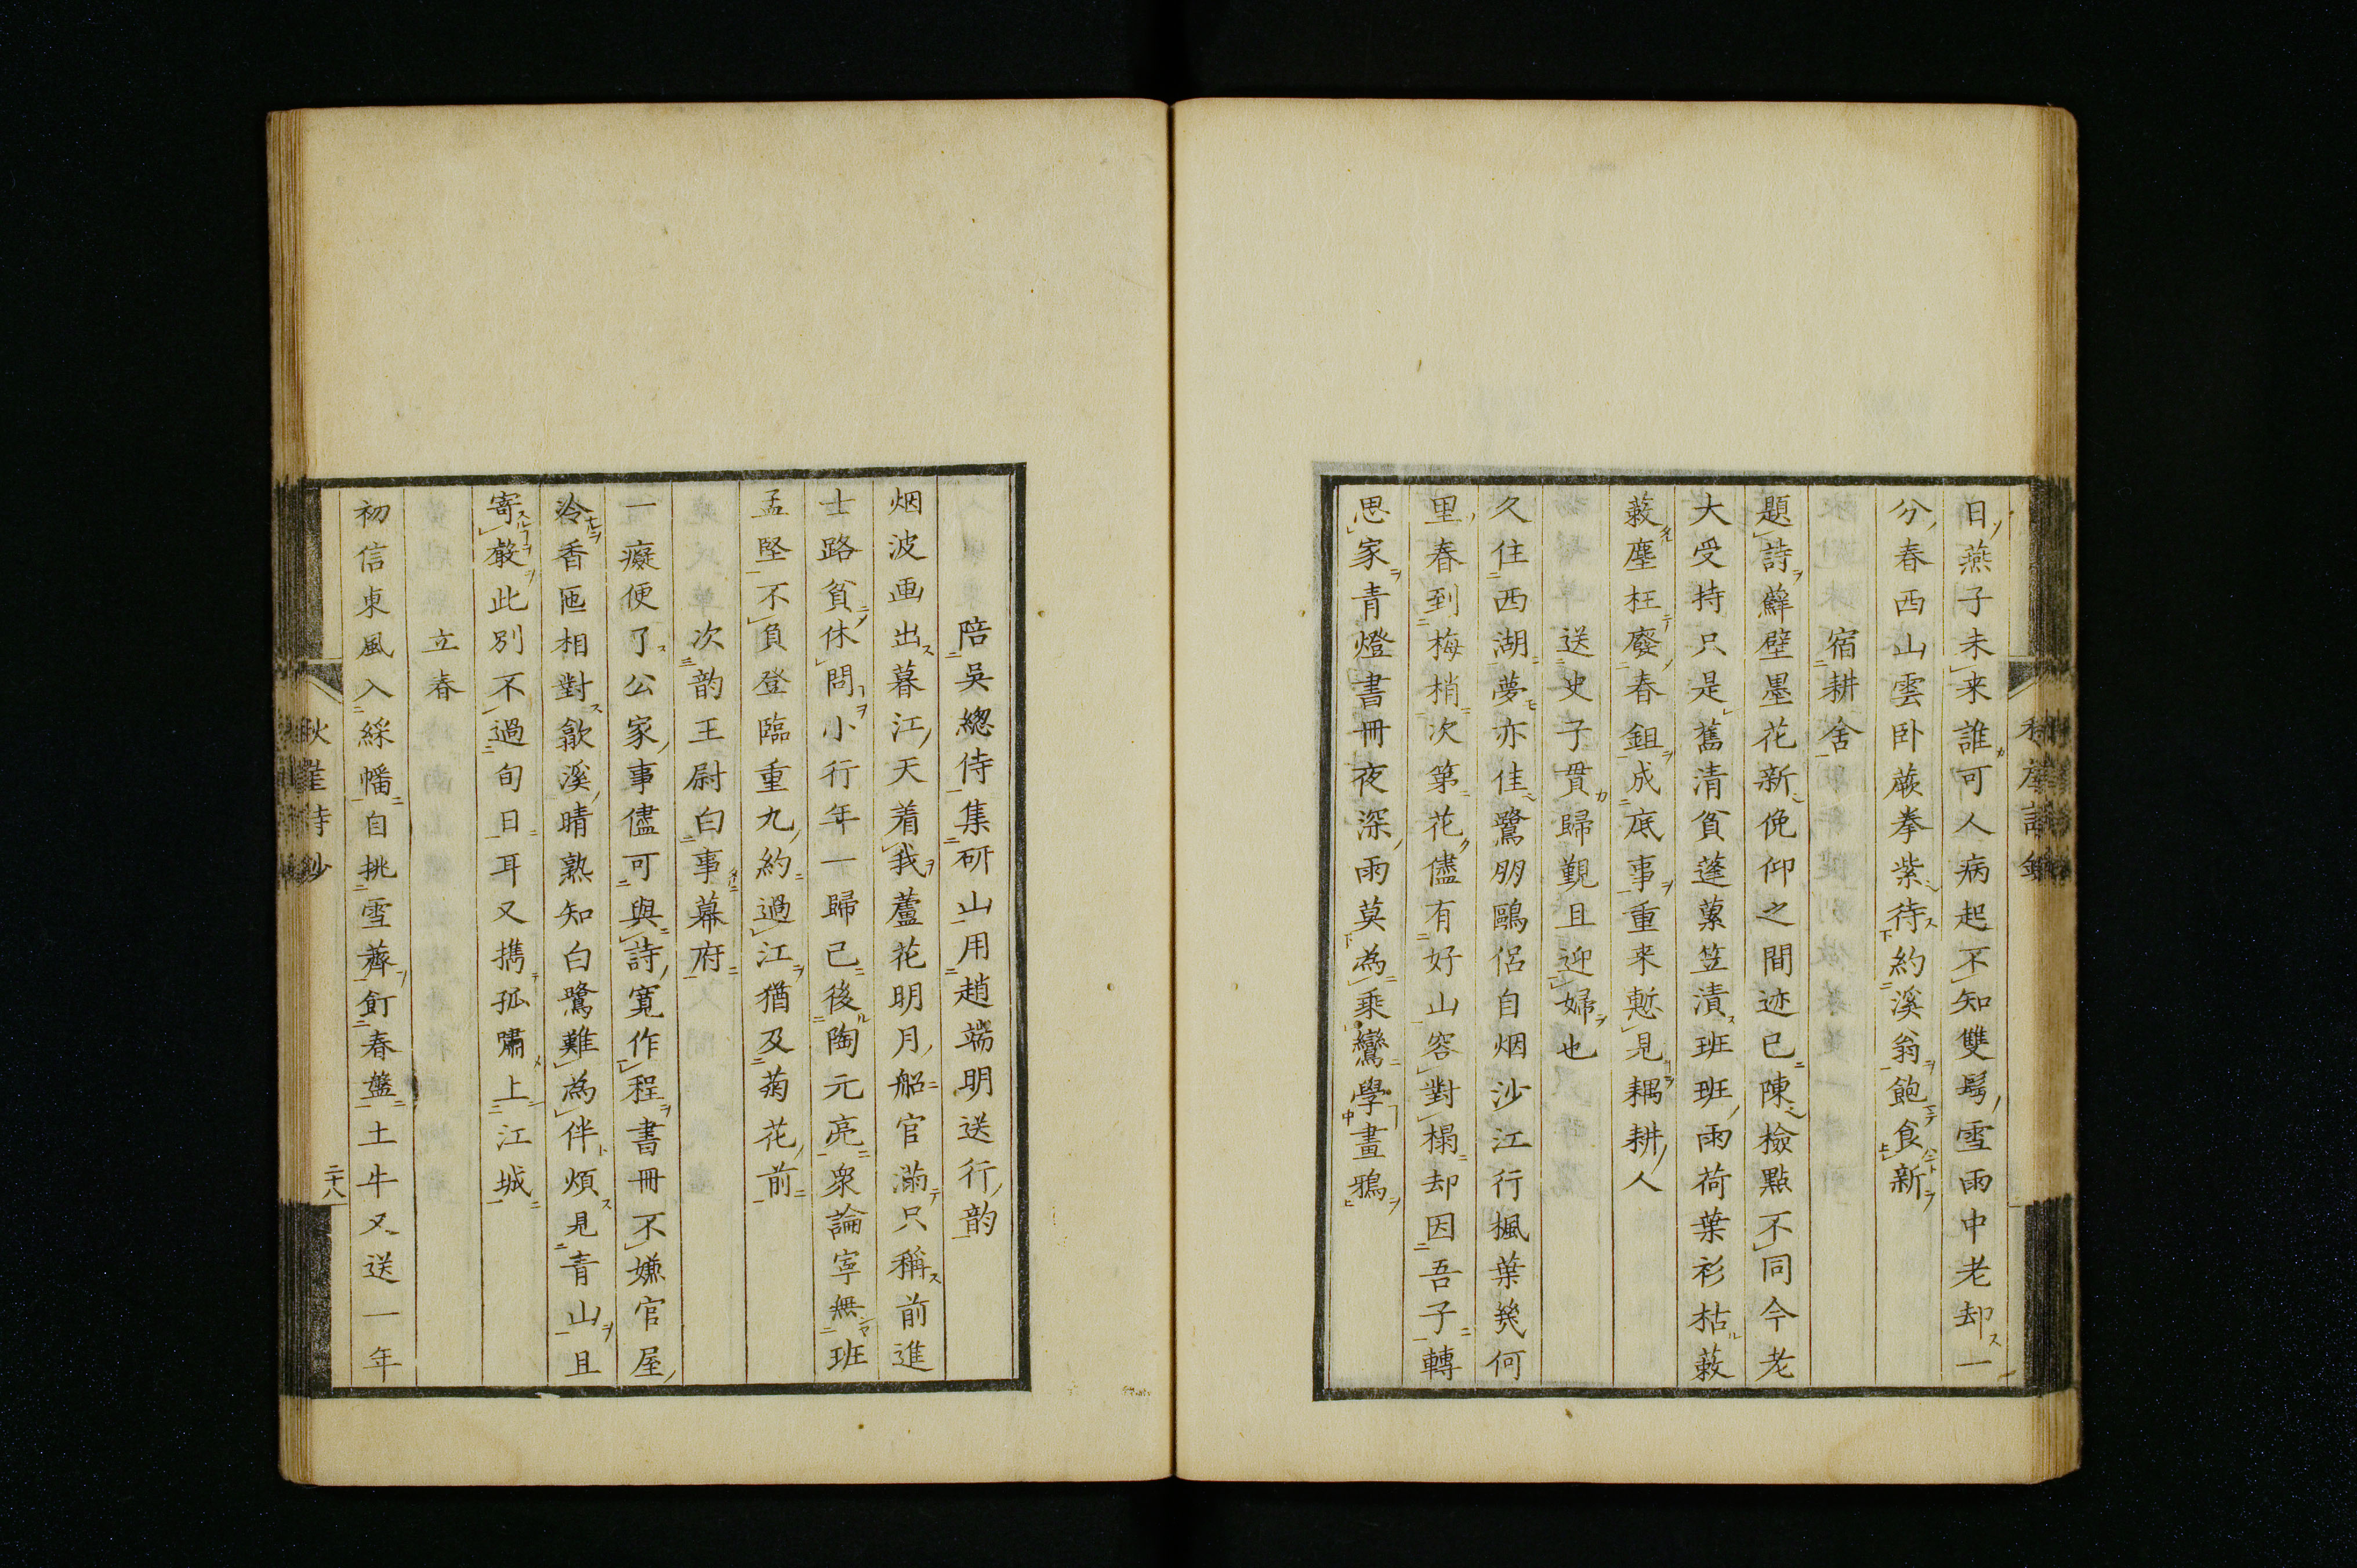 日燕子未来誰可人病起不知雙髩雪雨中老却一
分春西山雲卧蕨拳紫待約溪翁飽食新
宿耕舍
題詩蘚壁墨花新俛仰之間迹已陳檢點不同今老
大受持只是舊清貧蓬蒕笠漬班班雨荷葉衫枯蔌
蔌塵枉廢春鉏成底事重来慙見耦耕人
送史子貫歸覲且迎婦也
久住西湖夢亦佳鷺朋鷗侣自烟沙江行楓葉幾何
里春到梅梢次第花儘有好山容對榻却因吾子轉
思家青燈書冊夜深雨莫為乘鸞學畫鴉
陪吳緫侍集研山用趙端明送行韵
烟波画出暮江天着我蘆花明月船官滿只稱前進
士路貧休問小行年一歸已後陶元亮衆論寧無班
孟堅不負登臨重九約過江猶及菊花前
次韵王尉白事幕府
一癡便了公家事儘可與詩寬作程書冊不嫌官屋
冷香匜相對歙溪晴熟知白鷺難為伴煩見青山且
寄聲此別不過旬日耳又攜孤嘯上江城
立春
初信東風入綵幡自挑雪薺飣春盤土牛又送一年
秋崖詩鈔
二十八